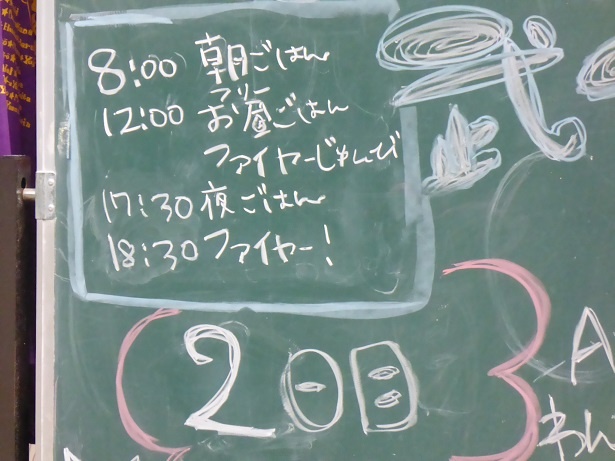 8:00 朝ごはん
フリー
12:00 お昼ごはん
ファイヤーじゅんび
17:30 夜ごはん
18:30 ファイヤー!
2日目
A